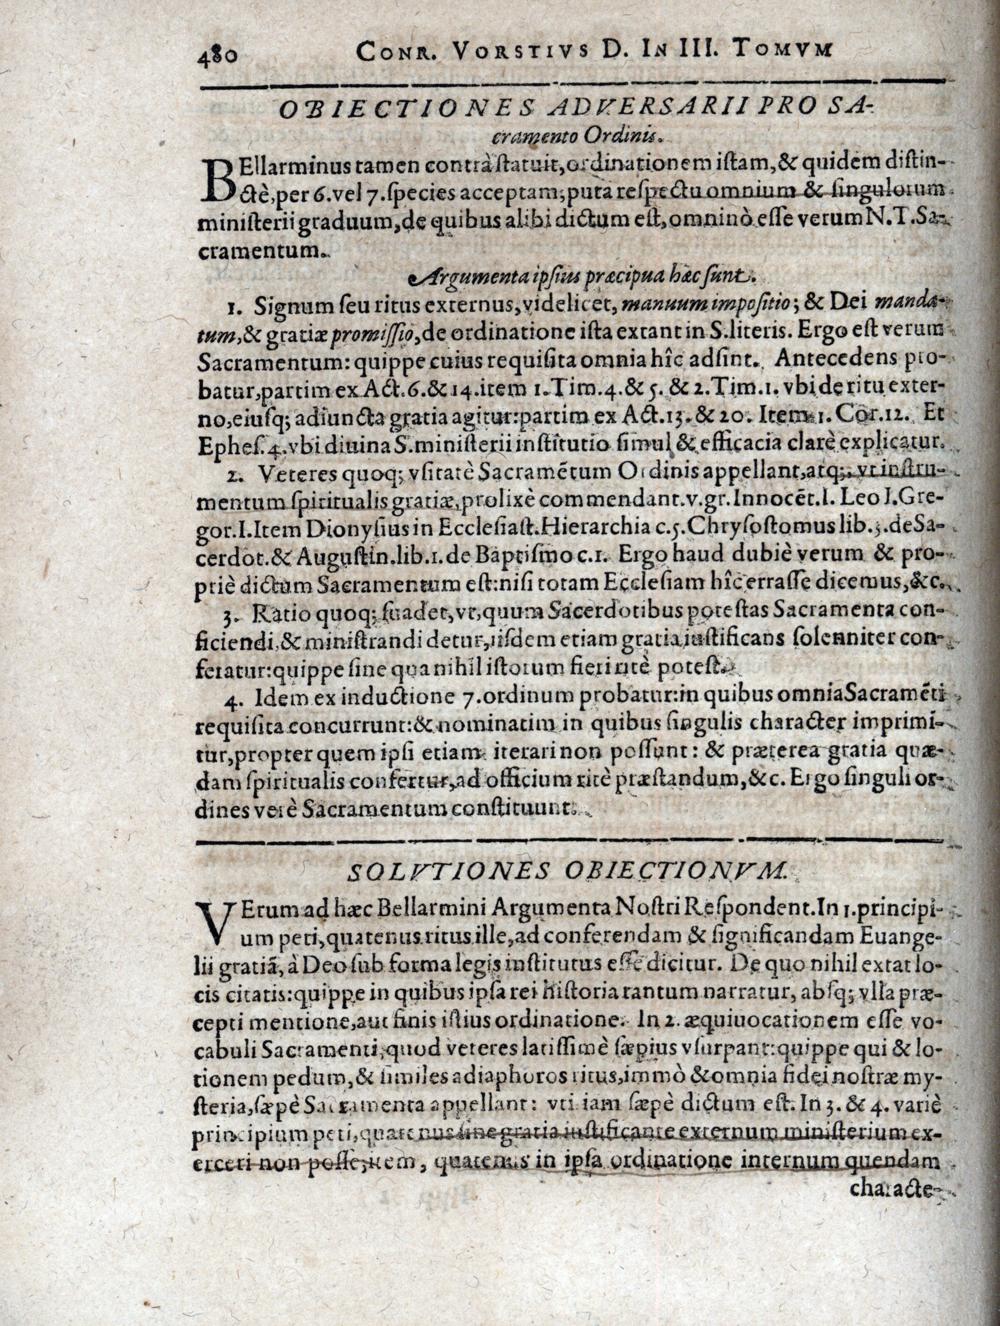 480 CONR. VORSTIVS D. IN III. TOMVM
OBIECTIONES ADVERSARII PRO SA-
cramento Ordinis.
BEllarminus tamen contrà statuit, ordinationem istam, & quidem distin-
ctè, per 6. vel 7. species acceptam; puta respectu omnium & singulorum
ministerii graduum, de quibus alibi dictum est, omninò esse verum N. T. Sa-
cramentum.
Argumenta ipsius præcipua hæc sunt.
1. Signum seu ritus externus, videlicet, manuum impositio; & Dei manda-
tum, & gratiæ promissio, de ordinatione ista extant in S. literis. Ergo est verum
Sacramentum: quippe cuius requisita omnia hîc adsint. Antecedens pro-
batur, partim ex Act. 6. & 14. item 1. Tim. 4. & 5. & 2. Tim. 1. vbi de ritu exter-
no, eiusq; adiuncta gratia agitur: partim ex Act. 13. & 20. Item 1. Cor. 12. Et
Ephes. 4. vbi diuina S. ministerii institutio simul & efficacia clarè explicatur.
2. Veteres quoq; vsitatè Sacramẽtum Ordinis appellant, atq; vt instru-
mentum spiritualis gratiæ, prolixè commendant. v. gr. Innocẽt. I. Leo I. Gre-
gor. I. Item Dionysius in Ecclesiast. Hierarchia c. 5. Chrysostomus lib. 3. de Sa-
cerdot. & Augustin. lib. 1. de Baptismo c. 1. Ergo haud dubiè verum & pro-
priè dictum Sacramentum est: nisi totam Ecclesiam hîc errasse dicemus, &c.
3. Ratio quoq; suadet, vt, quum Sacerdotibus potestas Sacramenta con-
ficiendi, & ministrandi detur, iisdem etiam gratia iustificans solenniter con-
feratur: quippe sine qua nihil istorum fieri ritè potest.
4. Idem ex inductione 7. ordinum probatur: in quibus omnia Sacramẽti
requisita concurrunt: & nominatim in quibus singulis character imprimi-
tur, propter quem ipsi etiam iterari non possunt: & præterea gratia quæ-
dam spiritualis confertur, ad officium ritè præstandum, &c. Ergo singuli or-
dines verè Sacramentum constituunt.
SOLVTIONES OBIECTIONVM.
VErum ad hæc Bellarmini Argumenta Nostri Respondent. In 1. principi-
um peti, quatenus ritus ille, ad conferendam & significandam Euange-
lii gratiã, à Deo sub forma legis institutus esse dicitur. De quo nihil extat lo-
cis citatis: quippe in quibus ipsa rei historia tantum narratur, absq; vlla præ-
cepti mentione, aut finis istius ordinatione. In 2. æquiuocationem esse vo-
cabuli Sacramenti, quod veteres latissimè sæpius vsurpant: quippe qui & lo-
tionem pedum, & similes adiaphoros ritus, immò & omnia fidei nostræ my-
steria, sæpè Sacramenta appellant: vti iam sæpè dictum est. In 3. & 4. variè
principium peti, quatenus sine gratia iustificante externum ministerium ex-
erceri non posse; item, quatenus in ipsa ordinatione internum quendam
characte-